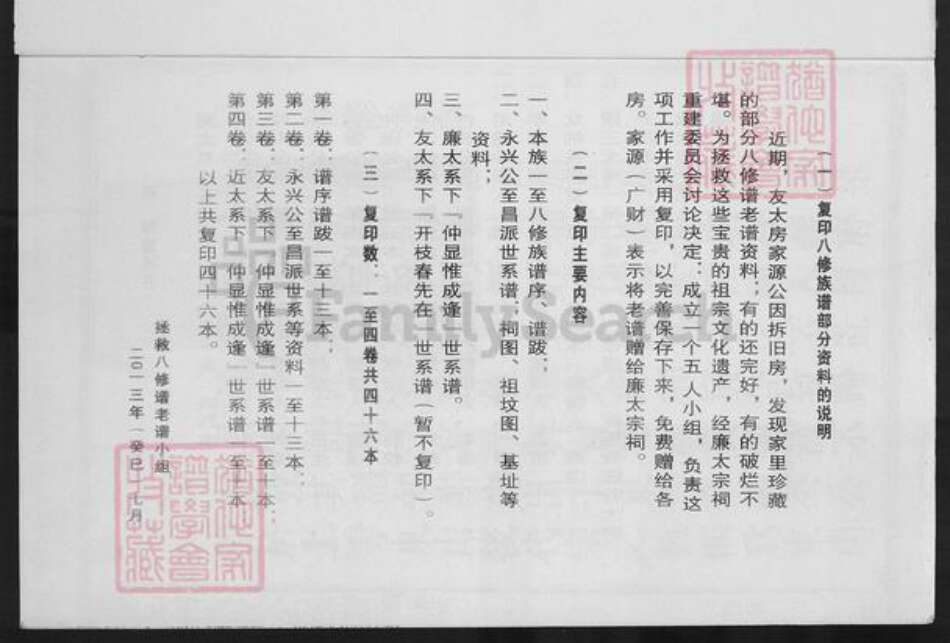 （一）复印八修族谱部分资料的说明
近期，友太房家源公因拆旧房，发现家里珍藏
的部分八修谱老谱资料；有的还完好，有的破烂不
堪。为拯救这些宝贵的祖宗文化遗产，经廉太宗祠
重建委员会讨论决定：成立一个五人小组，负责这
项工作并采用复印，以完善保存下来，免费赠给各
房。家源（广财）表示将老谱赠给廉太宗祠。
（二）复印主要内容
一、本族一至八修族谱序、谱跋；
二、永兴公至昌派世系谱、祠图、祖坟图、基址等
资料；
三、廉太系下「仲显惟成逢」世系谱。
四、友太系下「开枝春先在」世系谱（暂不复印）。
（三）复印数：一至四卷共四十六本
第一卷：谱序谱跋一至十三本；
第二卷：永兴公至昌派世系等资料一至十三本；
第三卷：友太系下「仲显惟成逢」世系谱一至十本；
第四卷：近太系下「仲显惟成逢」世系谱一至十本
以上共复印四十六本。
拯救八修谱老谱小组
二〇一三年（癸巳）七月
FamilySearch